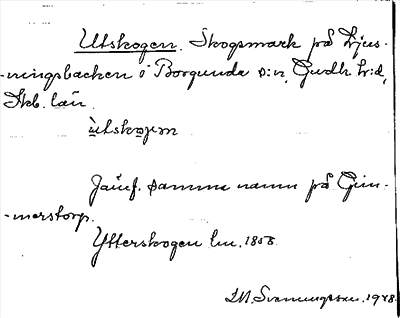 Utskogen. Skogsmark på Ljus-
-ningsbacken i Borgunda s:n, Gudh. h:d,
Skb. län.
ùtskogen
Jämf. samma namn på Gim-
-merstorp.
Ytterskogen lm. 1858.
M. Svenungsson. 1928.